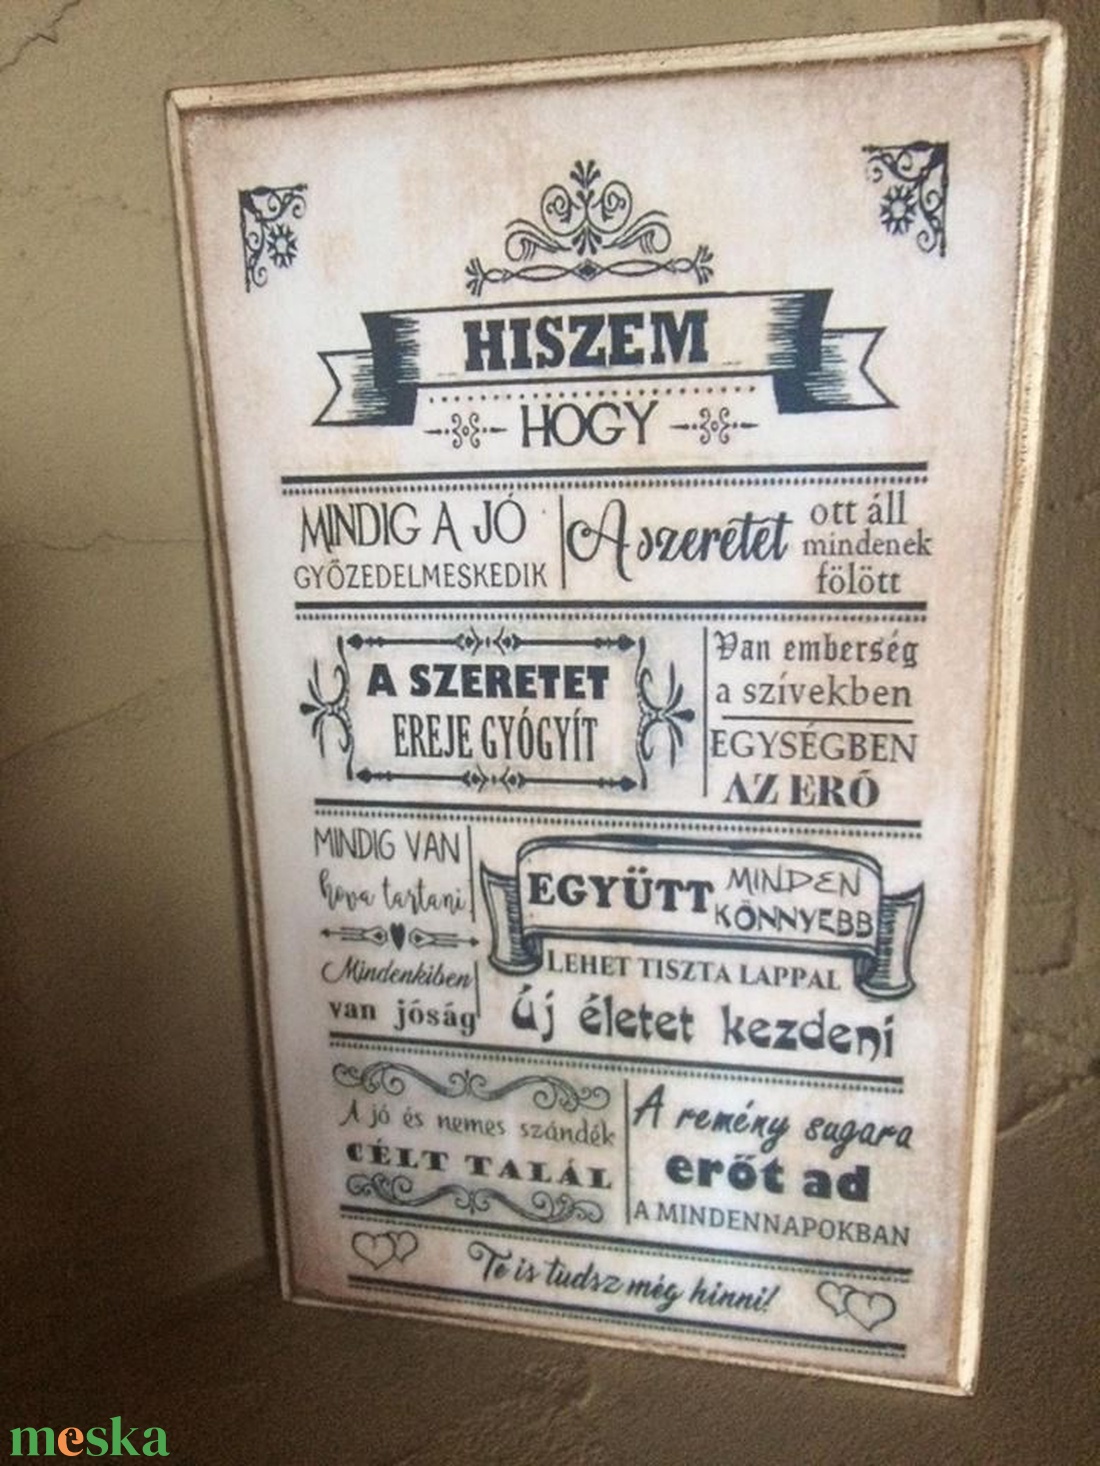 HISZEM
HOGY
MINDIG A JÓ
GYŐZEDELMESKEDIK
A szeretet
ott áll
mindenek
fölött
A SZERETET
EREJE GYÓGYÍT
Van emberség
a szívekben
EGYSÉGBEN
AZ ERŐ
MINDIG VAN
hova tartani
Mindenkiben
van jóság
EGYÜTT
MINDEN
KÖNNYEBB
LEHET TISZTA LAPPAL
új életet kezdeni
A jó és nemes szándék
CÉLT TALÁL
A remény sugara
erőt ad
A MINDENNAPOKBAN
Te is tudsz még hinni!
meska